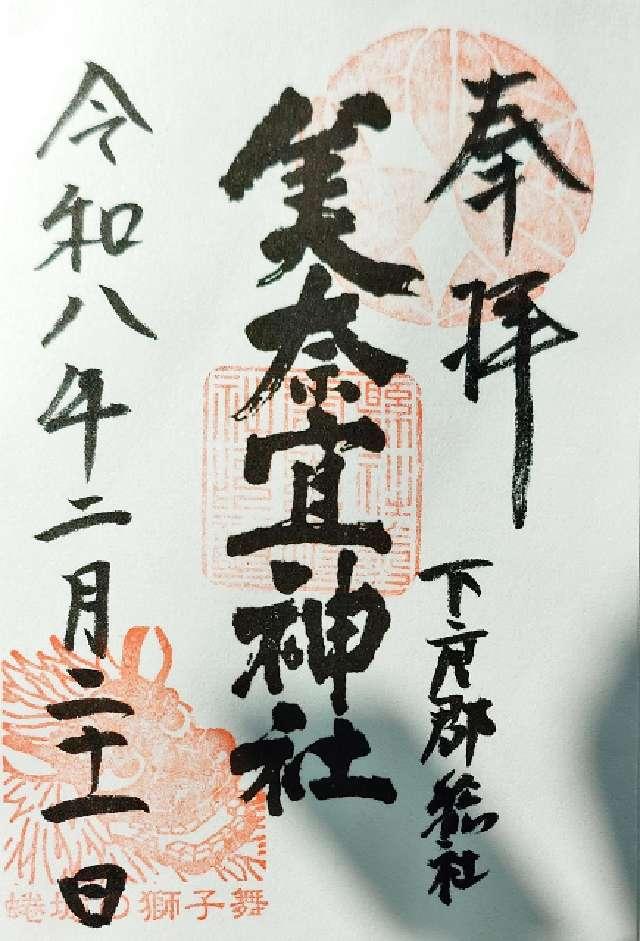 奉拝
下座郡総社
美奈宜神社
令和八年二月二十一日
蜷城の獅子舞